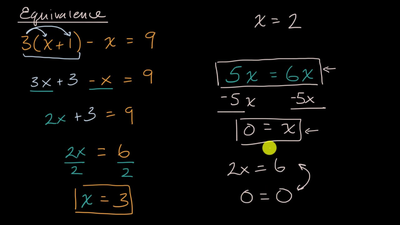 Equivalence
3(x+1) - x = 9
3x + 3 - x = 9
2x + 3 = 9
2x/2 = 6/2
x = 3
x = 2
5x = 6x
-5x -5x
0 = x
2x = 6
0 = 0